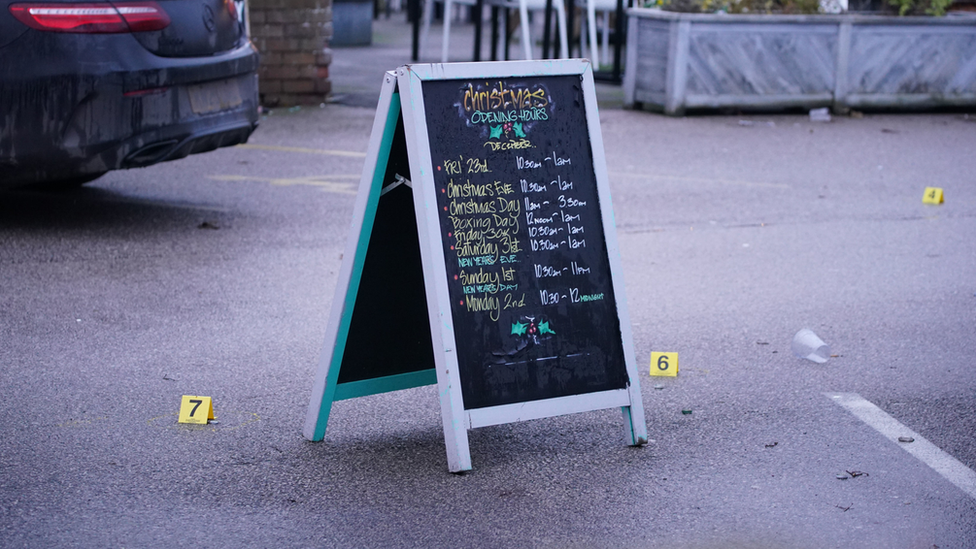 Christmas
OPENING HOURS
DECEMBER..
FRI' 23rd 10.30AM - 1AM
Christmas Eve 10.30AM - 1AM
Christmas Day 11AM - 3.30PM
Boxing Day 12 NOON - 1AM
Friday 30th 10.30AM - 1AM
Saturday 31st 10.30AM - 1AM
NEW YEARS EVE
Sunday 1st 10.30AM - 11PM
NEW YEARS DAY
Monday 2nd 10.30 - 12 MIDNIGHT
4
6
7